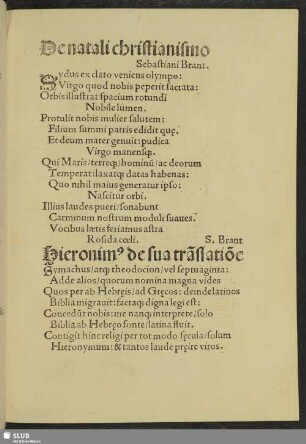 De natali christianismo
Sebastiani Brant.
Sydus ex clato veniens olympo:
Virgo quod nobis peperit sacrata:
Orbis illustrat spacium rotundi
Nobile lumen.
Protulit nobis mulier salutem:
Filium summi patris edidit quę,
Et deum mater genuit: pudica
Virgo manensqꝫ.
Qui Maris/terręqꝫ/hominū/ac deorum
Temperat: laxatqꝫ datas habenas:
Quo nihil maius generatur ipso:
Nascitur orbi.
Illius laudes pueri/sonabunt
Carminum nostrum moduli suaues.
Vocibus lætis feriamus astra
Rosida cœli. S. Brant
Hieronimꝰ de sua trāslatiōe
Symachus/atqꝫ theodocion/vel septuaginta:
Adde alios/quorum nomina magna vides
Quos per ab Hebręis/ad Gręcos: deindelatinos
Biblia migrauit: sacraqꝫ digna legi est:
Concedūt nobis: me nanqꝫ interprete/solo
Biblia ab Hebręo fonte/latina fluit.
Contigit hinc religi per tot modo sęcula/solum
Hieronymum: & tantos laude pręire viros.
SLUB